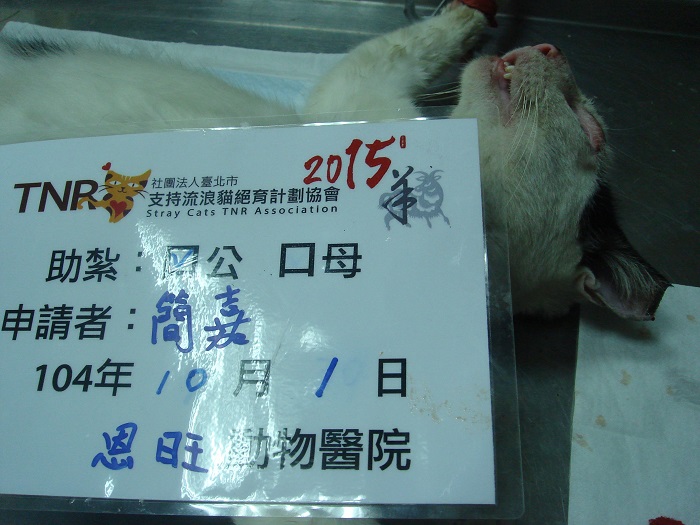 TNR 社團法人臺北市
支持流浪貓絕育計劃協會
Stray Cats TNR Association
2015 羊
助紮：☑公 口母
申請者：簡嘉
104年 10 月 1 日
恩旺 動物醫院